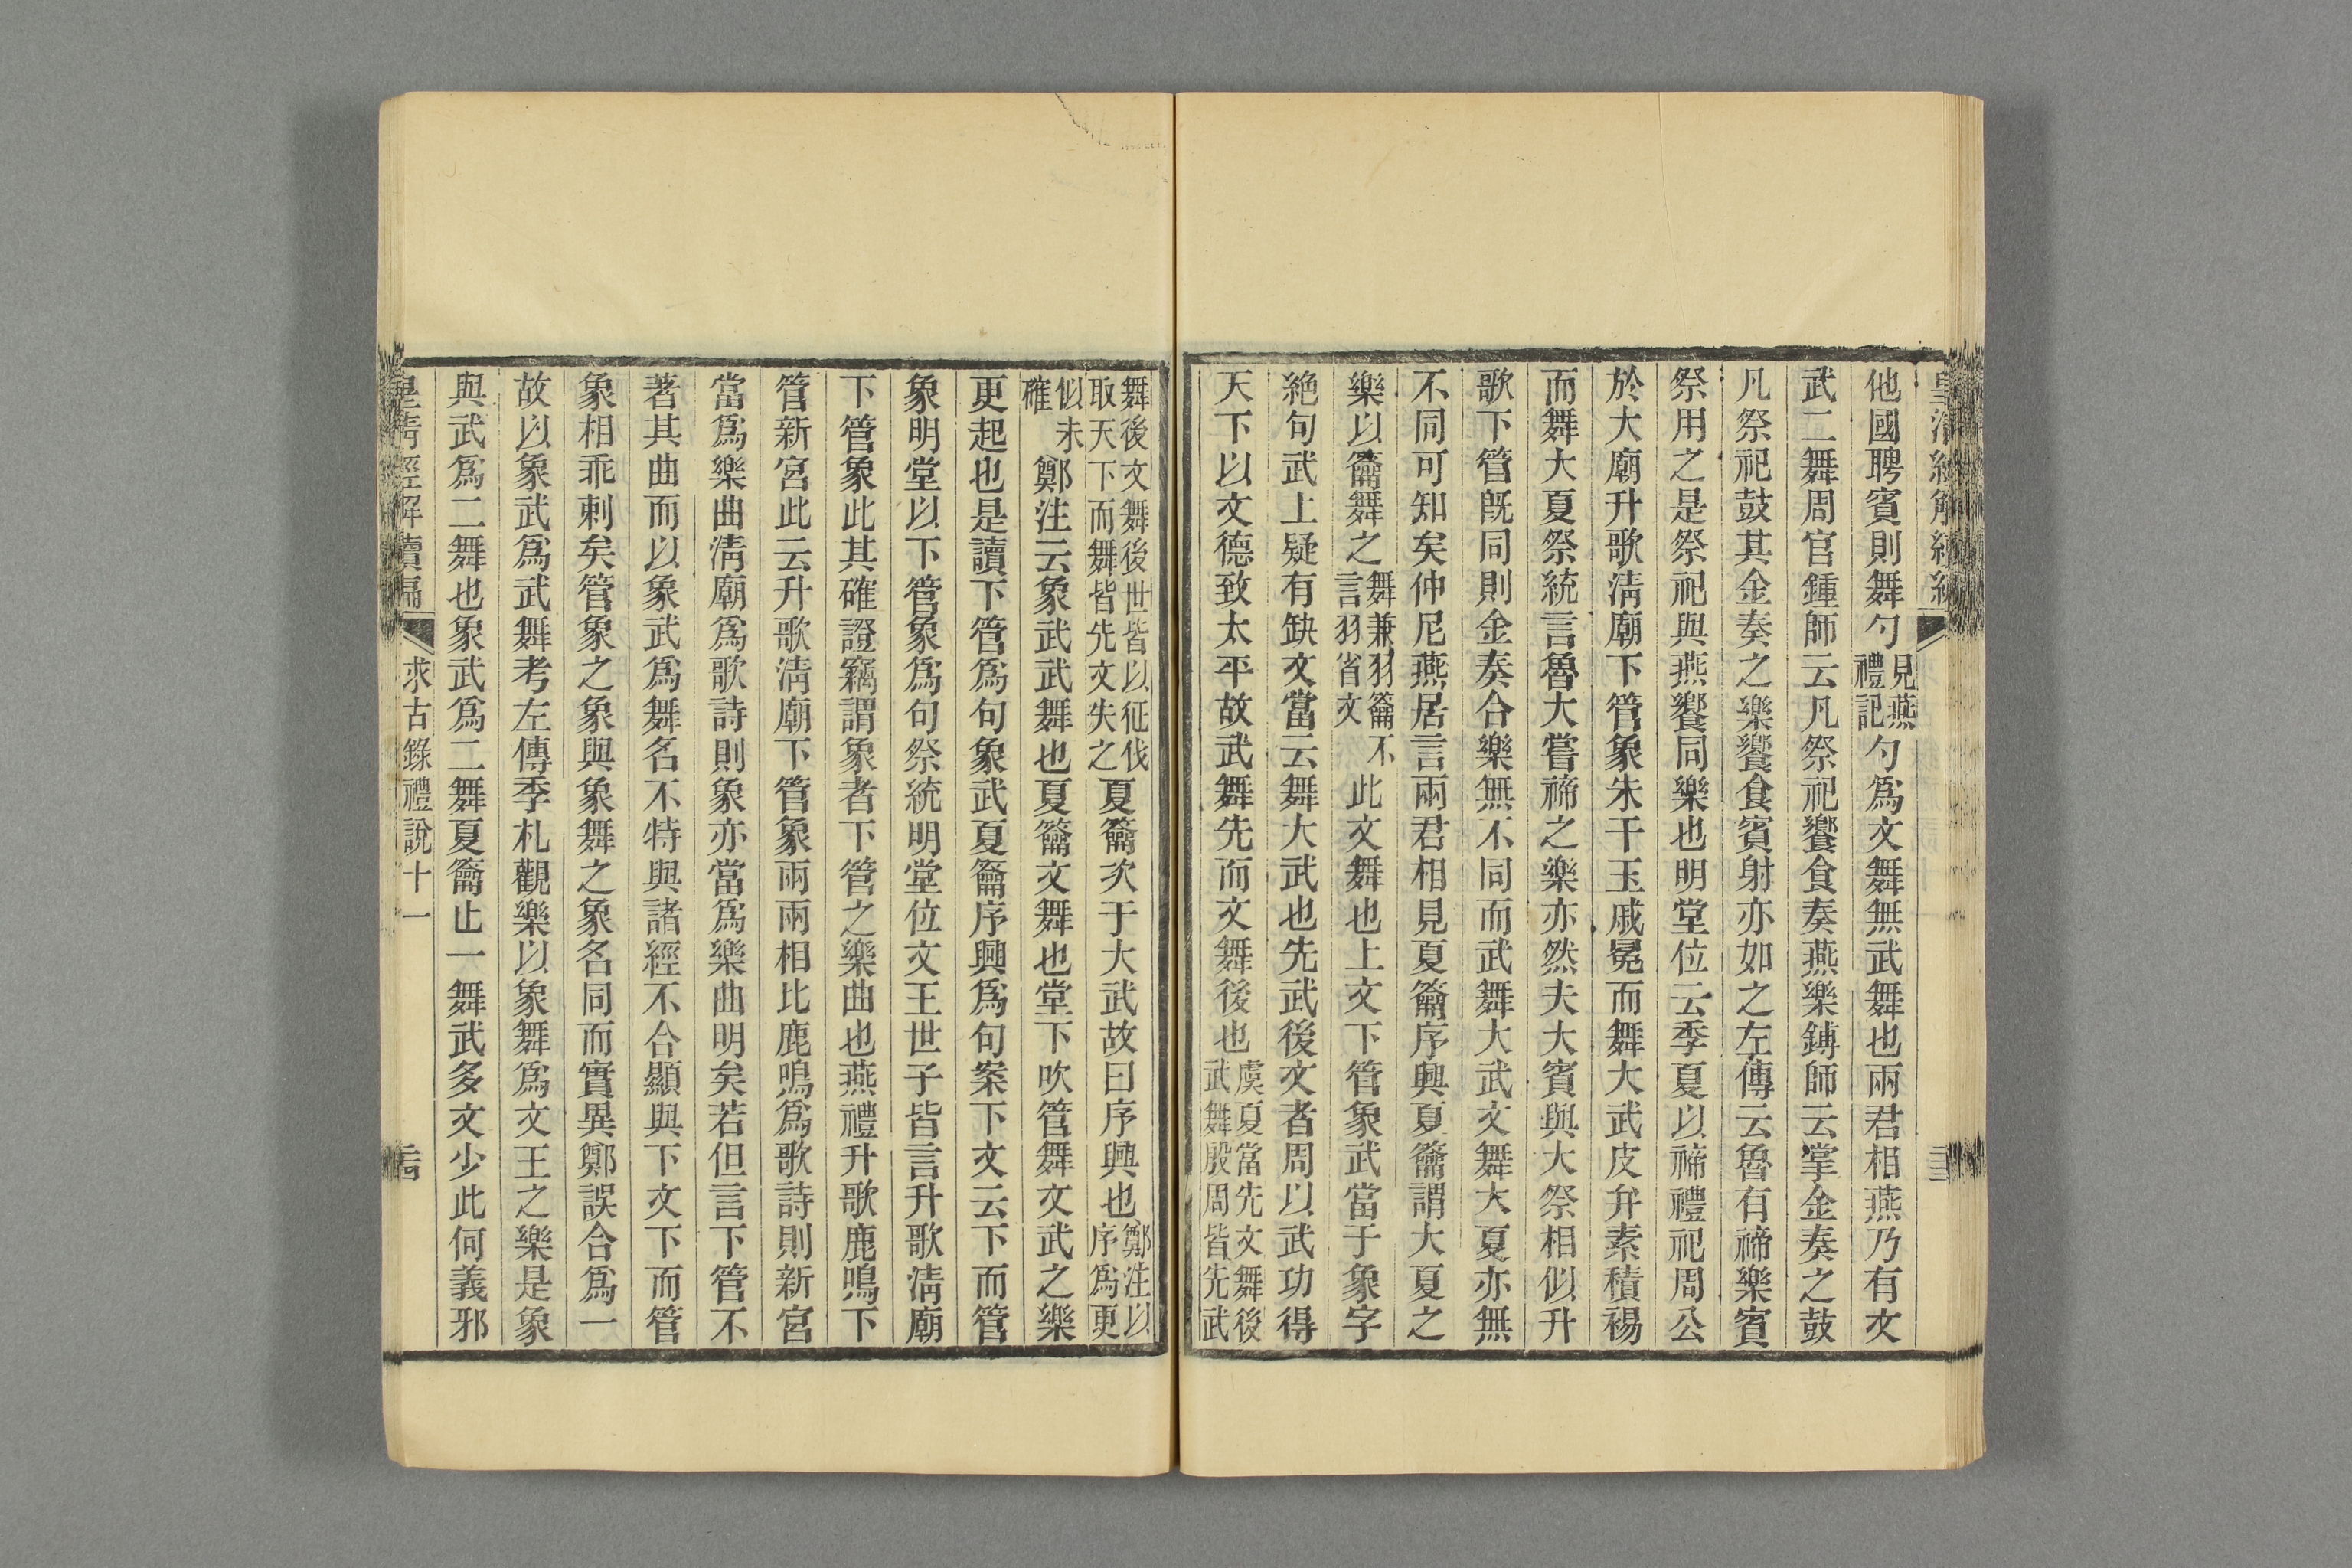 他國聘賓則舞勺見燕禮記勺爲文舞無武舞也兩君相燕乃有文
武二舞周官鍾師云凡祭祀饗食奏燕樂鎛師云掌金奏之鼓
凡祭祀鼓其金奏之樂饗食賓射亦如之左傳云魯有禘樂賓
祭用之是祭祀與燕饗同樂也明堂位云季夏以禘禮祀周公
於大廟升歌淸廟下管象朱干玉戚冕而舞大武皮弁素積裼
而舞大夏祭統言魯大嘗禘之樂亦然夫大賓與大祭相似升
歌下管旣同則金奏合樂無不同而武舞大武文舞大夏亦無
不同可知矣仲尼燕居言兩君相見夏籥序興夏籥謂大夏之
樂以籥舞之舞兼羽籥不言羽省文此文舞也上文下管象武當于象字
絶句武上疑有缺文當云舞大武也先武後文者周以武功得
天下以文德致太平故武舞先而文舞後也虞夏當先文舞後武舞殷周皆先武
舞後文舞後世皆以征伐取天下而舞皆先文失之夏籥次于大武故曰序興也鄭注以序爲更
似未確鄭注云象武武舞也夏籥文舞也堂下吹管舞文武之樂
更起也是讀下管爲句象武夏籥序興爲句案下文云下而管
象明堂以下管象爲句祭統明堂位文王世子皆言升歌淸廟
下管象此其確證竊謂象者下管之樂曲也燕禮升歌鹿鳴下
管新宮此云升歌淸廟下管象兩兩相比鹿鳴爲歌詩則新宮
當爲樂曲淸廟爲歌詩則象亦當爲樂曲明矣若但言下管不
著其曲而以象武爲舞名不特與諸經不合顯與下文下而管
象相乖剌矣管象之象與象舞之象名同而實異鄭誤合爲一
故以象武爲武舞考左傳季札觀樂以象舞爲文王之樂是象
與武爲二舞也象武爲二舞夏籥止一舞武多文少此何義邪
皇淸經解續編
求古錄禮說十一